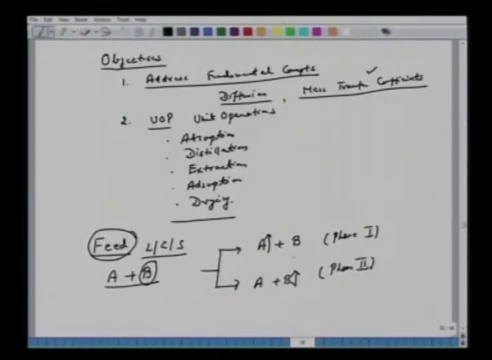 Objectives
1. Address Fundamental Concepts
Diffusion, Mass Transfer Coefficients
2. UOP Unit Operations
. Absorption
. Distillation
. Extraction
. Adsorption
. Drying.
Feed L/G/S
A + B
A↑ + B (Phase I)
A + B↑ (Phase II)